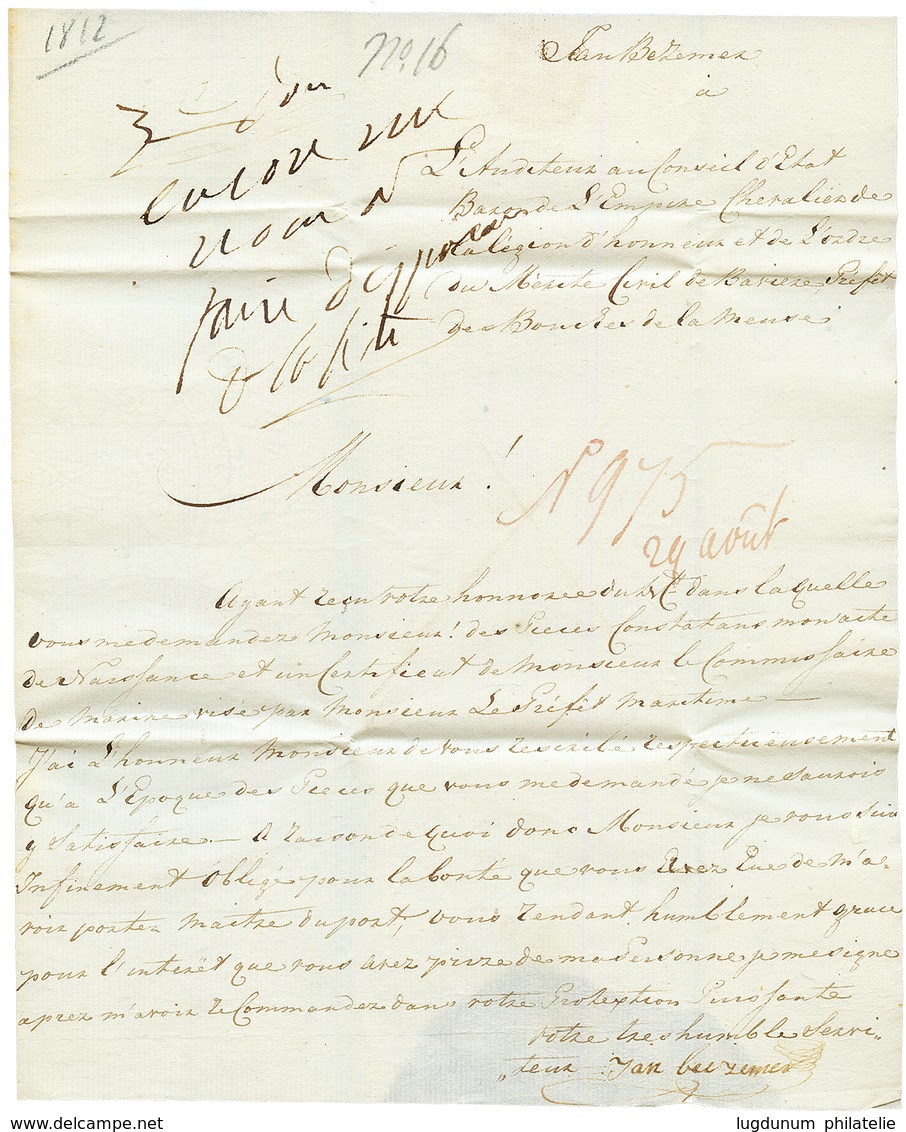 1812
No. 16
Jan Bezemer
a
L'Auditeur au Conseil d'Etat
Baron de L'Empire Chevalier de
la légion d'honneur et de L'ordre
du Merite Civil de Baviere Préfet
des Bouches de la Meuse
3e Don
encore une
nom
faire
Monsieur !
N 975
29 août
Ayant reçu votre honnoree du dans laquelle
vous me demandez Monsieur ! des Pieces Constatans mon acte
de Naissance et un Certificat de Monsieur le Commissaire
de Marine visé par Monsieur Le Préfet maritime —
J'ai L'honneur Monsieur de vous respectieusement
qu'a L'Epoque des Pieces que vous me demandé je ne saurois
y Satisfaire — A raison de quoi donc Monsieur je vous suis
Infinement Obligé pour la bonté que vous Avez Eue de m'a-
voir porter Maitre du port, vous rendant humblement grace
pour l'interèt que vous avez prize de ma Personne, je me signe
aprez m'avoir recommandez dans votre Protextion Puissante
votre tres humble Servi„
„teur Jan bezemer
lugdunum philatelie